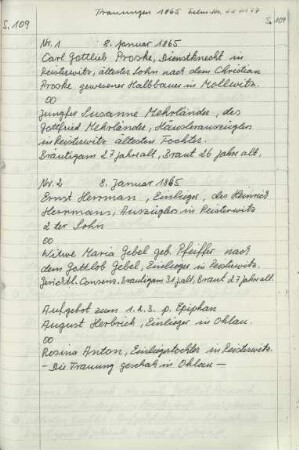 Trauungen 1865
S. 109
S. 109
Nr. 1 8. Januar 1865
Carl Gottlieb Proske, Dienstknecht in
Peisterwitz, ältester Sohn nach dem Christian
Proske gewesener Halbbauer in Mollwitz.
oo
Jungfer Susanne Mehrländer, des
Gottfried Mehrländer, Häusleranzüglers
in Peisterwitz ältesten Tochter.
Bräutigam 27 Jahr alt, Braut 26 Jahr alt.
Nr. 2 8. Januar 1865
Ernst Herrman, Einlieger, des Heinrich
Herrmans, Auszüglers in Peisterwitz
2 ter Sohn
oo
Witwe Maria Gebel geb. Pfeiffer nach
dem Gottlob Gebel, Einlieger in Peisterwitz.
Gerichtl. Consens. Bräutigam 31 J. alt, Braut 27 Jahr alt.
Aufgebot zum 1. 2. 3. p. Epiphan
August Herbrich, Einlieger in Ohlau.
oo
Rosina Anton, Einliegertochter in Peisterwitz.
- Die Trauung geschah in Ohlau -